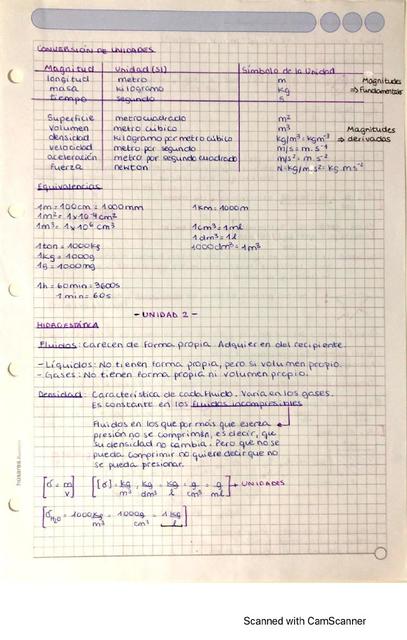 CONVERSIÓN DE UNIDADES
Magnitud Unidad (SI) Símbolo de la Unidad
longitud metro m
masa kilogramo kg
tiempo segundo s
Magnitudes
⇒ Fundamentales
Superficie metro cuadrado m²
Volumen metro cúbico m³
densidad kilogramo por metro cúbico kg/m³ = kgm⁻³
velocidad metro por segundo m/s = m.s⁻¹
aceleración metro por segundo cuadrado m/s² = m.s⁻²
Fuerza newton N=kg/m.s² = kg.m.s⁻²
Magnitudes
⇒ derivadas
Equivalencias
1m = 100cm = 1000mm 1km = 1000m
1m² = 1x10⁻⁴cm²
1m³ = 1x10⁶cm³ 1cm³ = 1ml
1dm³ = 1l
1ton = 1000kg 1000dm³ = 1m³
1kg = 1000g
1g = 1000mg
1h = 60min = 3600s
1min = 60s
- UNIDAD 2 -
HIDROESTÁTICA
Fluidos: Carecen de forma propia. Adquieren del recipiente.
- Líquidos: No tienen forma propia, pero si volumen propio.
- Gases: No tienen forma propia ni volumen propio.
Densidad: Característica de cada fluido. Varía en los gases.
Es constante en los fluidos incompresibles
Fluidos en los que por más que ejerza
presión no se comprimen, es decir, que
su densidad no cambia. Pero que no se
pueda comprimir no quiere decir que no
se pueda presionar.
[δ = m/v] [[δ] = kg/m³, kg/dm³ = kg/l = g/cm³ = g/ml] → UNIDADES
[δH₂O = 1000kg/m³ = 1000g/cm³ = 1kg/l]
Scanned with CamScanner